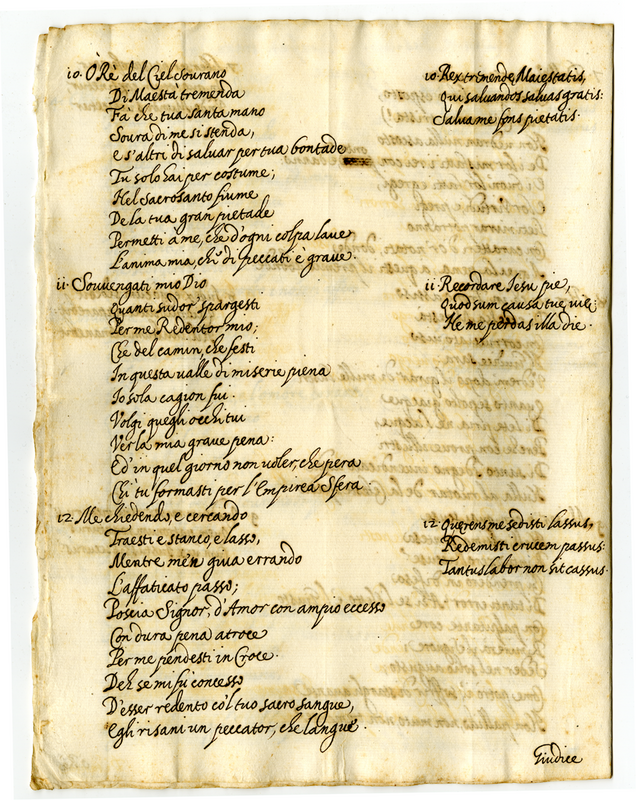 10. Ô Rè del Ciel sourano
Di Maestà tremenda
Fà che tua santa mano
Soura di me si stenda,
e s'altri di saluar per tua bontade
Tu solo hai per costume;
Nel sacrosanto fiume
De la tua gran pietade
Permetti a me, che d'ogni colpa laue
L'anima mia, che di peccati è graue.
11. Souuengati mio Dio
Quanti sudor' spargesti
Per me Redentor mio;
Che del camin, che festi
In questa ualle di miserie piena
Io sola cagion fui.
Volgi quegli occhi tui
Ver la mia graue pena:
Ed in quel giorno non uoler, che pera
Chi tu formasti per l'Empirea Sfera.
12. Me chiedendo, e cercando
Traesti e stanco, e lasso,
Mentre me'n giua errando
L'affaticato passo;
Poscia Signor, d'Amor con ampio eccesso
Con dura pena atroce
Per me pendesti in Croce.
Deh se mi fù concesso
D'esser redento co'l tuo sacro sangue,
Egli risani un peccator, che langue.
10. Rex tremendę Maiestatis,
Qui saluandos saluas gratis:
Salua me fons pietatis.
11. Recordare Iesu pie,
Quod sum causa tuę uię:
Ne me perdas illa die.
12. Querens me sedisti lassus,
Redemisti crucem passus:
Tantus labor non sit cassus.
Giudice